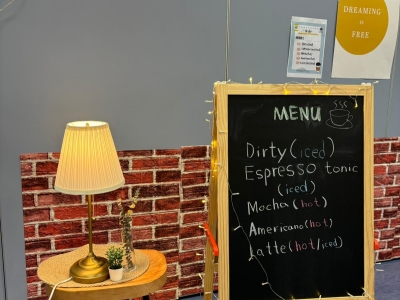 DREAMING
is
FREE
MENU
Dirty (iced)
Espresso tonic
(iced)
Mocha (hot)
Americano (hot)
Latte (hot/iced)